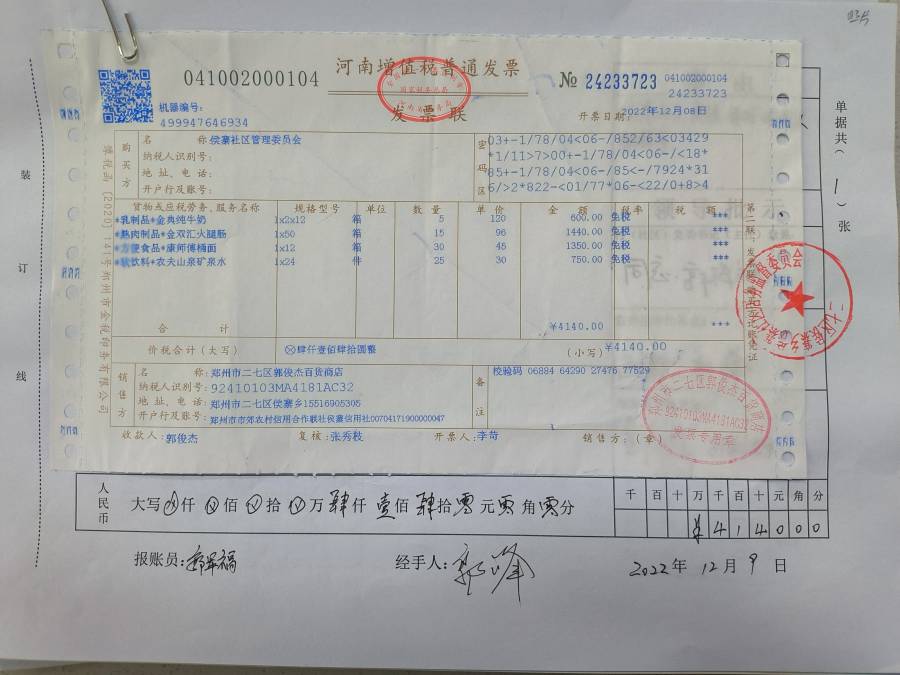 河南增值税普通发票
发票联
041002000104
№ 24233723
041002000104
24233723
机器编号:
499947646934
开票日期: 2022年12月08日
购买方
名 称: 侯寨社区管理委员会
纳税人识别号:
地址、电话:
开户行及账号:
密码区
03+-1/78/04<06-/852/63<03429
*1/11>7>00+-1/78/04<06-/<18*
85+-1/78/04<06-/85<-/7924*31
6/>2*822-<01/77*06-<22/0+8>4
货物或应税劳务、服务名称 规格型号 单位 数量 单价 金额 税率 税额
*乳制品*金典纯牛奶 1x2x12 箱 5 120 600.00 免税 ***
*熟肉制品*金双汇火腿肠 1x50 箱 15 96 1440.00 免税 ***
*方便食品*康师傅桶面 1x12 箱 30 45 1350.00 免税 ***
*软饮料*农夫山泉矿泉水 1x24 件 25 30 750.00 免税 ***
合计 ¥4140.00 ***
价税合计(大写) ⊗肆仟壹佰肆拾圆整 (小写) ¥4140.00
销售方
名 称: 郑州市二七区郭俊杰百货商店
纳税人识别号: 92410103MA4181AC32
地址、电话: 郑州市二七区侯寨乡15516905305
开户行及账号: 郑州市市郊农村信用合作联社侯寨信用社00704171900000047
备注
校验码 06884 64290 27476 77529
收款人: 郭俊杰 复核: 张秀枝 开票人: 李苛 销售方: (章)
第二联:发票联 购买方记账凭证
郑州市二七区郭俊杰百货商店
92410103MA4181AC32
发票专用章
单据共( 1 )张
装
订
线
人民币
大写 ⊗仟⊗佰⊗拾⊗万肆仟壹佰肆拾零元零角零分
千百十万千百十元角分
¥414000
报账员:
经手人:
2022年12月9日